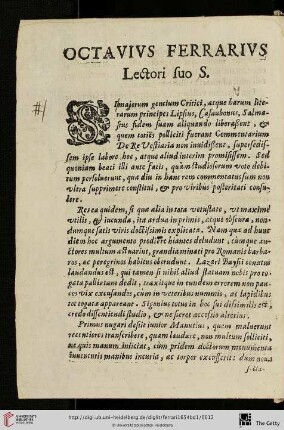 OCTAVIVS FERRARIVS
Lectori suo S.
SI majorum gentium Critici, atque harum lite-
rarum principes Lipsius, Casaubonus, Salma-
sius fidem suam aliquando liberassent, &
quem toties polliciti fuerant Commentarium
De Re Vestiaria non invidissent, supersedis-
sem ipse labore hoc, atque aliud interim promisissem. Sed
quoniam beati illi ante facti, quàm studiosorum voto debi-
tum persoluerunt, qua diu in hanc rem commentatus sum non
vltra supprimere constitui, & pro viribus posteritati consu-
lere.
Res ea quidem, si qua alia in tota vetustate, vt maximè
vtilis, & iucunda, ita ardua in primis, atque obscura, non-
dumque satis viris doctissimis explicata. Nam qua ad hunc
diem hoc argumento prodiere hiantes deludunt, cùmque au-
ctores multum astuarint, grandia minati pro Romanis barba-
ros, ac peregrinos habitus obtrudunt. Lazari Baysii conatus
laudandus est, qui tamen si nihil aliud statuam nobis pro to-
gata palliatam dedit, traxitque in eundem errorem non pau-
cos vix excusandos, cum in veteribus nummis, ac lapidibus
toc togata appareat. Sigonius totus in hoc sui dissimilis est,
credo dissentiendi studio, & ne seret accessio alterius.
Primus nugari desijt iunior Manutius, quem maluerunt
recentiores transcribere, quam laudare, non multum solliciti,
ne quis manum iniiciat, cum pridem doctorum monumenta